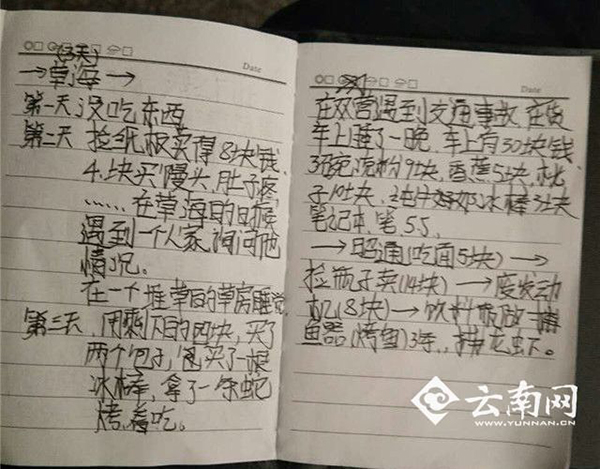 Date
(3天)
→草海→
第一天 没吃东西
第二天 捡纸板卖得8块钱,
4块买馒头,肚子疼,
……在草海的
遇到一个人家,询问他
情况。
在一个堆草的草房睡觉
第三天,用剩下的四块,买了
两个包子,买了一根
冰棒,拿了一条蛇
烤着吃。
Date
在双营遇到交通事故,在货
车上睡了一晚,车上有30块钱
3碗凉粉9块,香蕉5块,桃
子10块,冰棒3块
笔记本,笔5.5
→昭通(吃面5块)→
捡瓶子卖(14块)→废发动
机(8块)→饮料瓶做捕
鱼器(烤鱼)3条,龙虾。
云南网
WWW.YUNNAN.CN